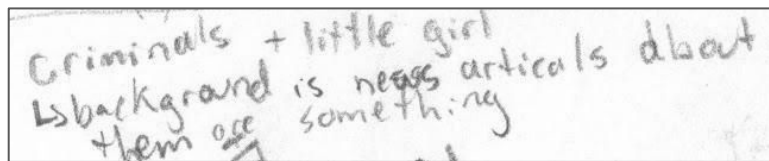 Criminals + little girl
↳background is news articals about
them ore something